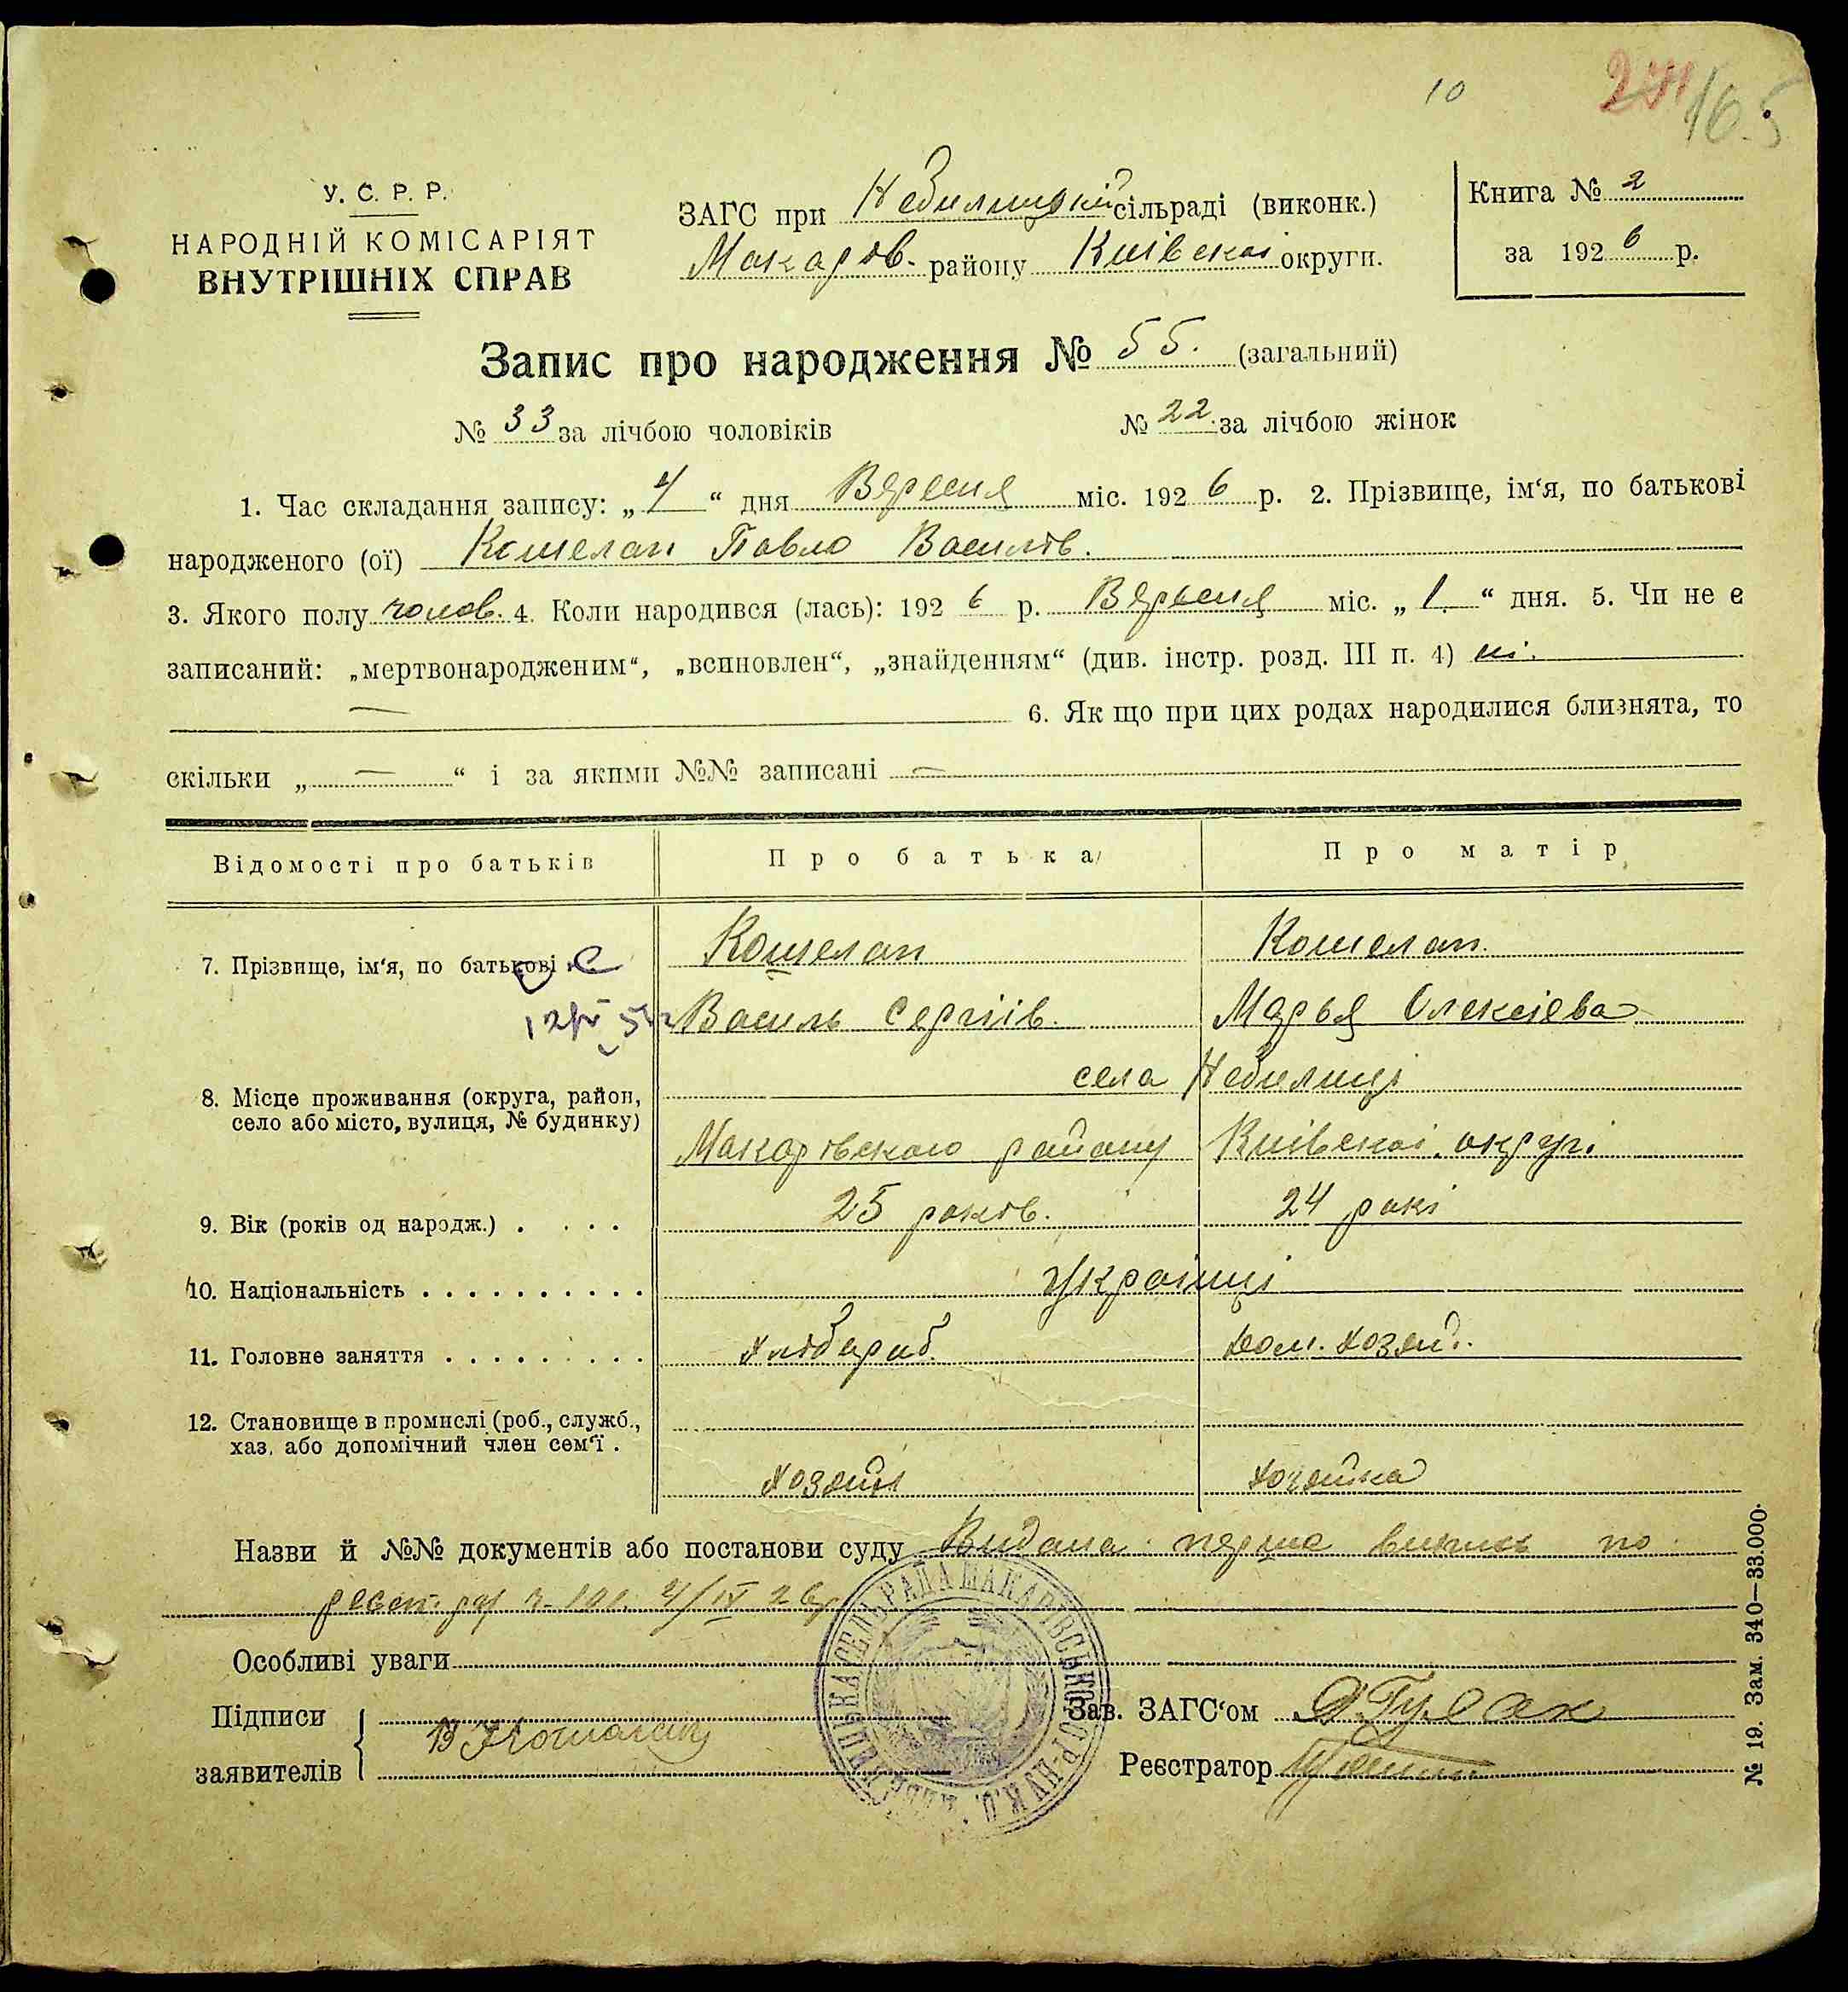 10
165
У. С. Р. Р.
НАРОДНІЙ КОМІСАРІЯТ
ВНУТРІШНІХ СПРАВ
ЗАГС при Небилицькій сільраді (виконк.)
Макарів. району Київскої округи.
Книга № 2
за 1926 р.
Запис про народження № 55. (загальний)
№ 33 за лічбою чоловіків № 22. за лічбою жінок
1. Час складання запису: „4“ дня Вересня міс. 1926 р. 2. Прізвище, ім‘я, по батькові
народженого (ої) Кошелап Павло Василів.
3. Якого полу чолов. 4. Коли народився (лась): 1926 р. Вересня міс. „1.“ дня. 5. Чи не є
записаний: „мертвонародженим“, „всиновлен“, „знайденням“ (див. інстр. розд. III п. 4) ні.
— 6. Як що при цих родах народилися близнята, то
скільки „ — “ і за якими №№ записані —
Відомості про батьків Про батька Про матір
7. Прізвище, ім‘я, по батькові Кошелап Кошелап.
Василь Сергіїв. Марья Олексієва
8. Місце проживання (округа, район,
село або місто, вулиця, № будинку)
села Небилиці
Макарівского району Київскої округі
9. Вік (років од народж.) . . . . 25 років. 24 рокі
10. Національність . . . . . . . . . . Українці
11. Головне заняття . . . . . . . . . Хлібороб. дом. хозяй.
12. Становище в промислі (роб., служб.,
хаз. або допомічний член сем‘ї .
хозяїн хозяйка
Назви й №№ документів або постанови суду Видана перша випись по
реєст. 4/IX 26р
Особливі уваги
Підписи
заявителів
В Кошелап
Зав. ЗАГС‘ом
Реєстратор
№ 19. Зам. 340—33.000.